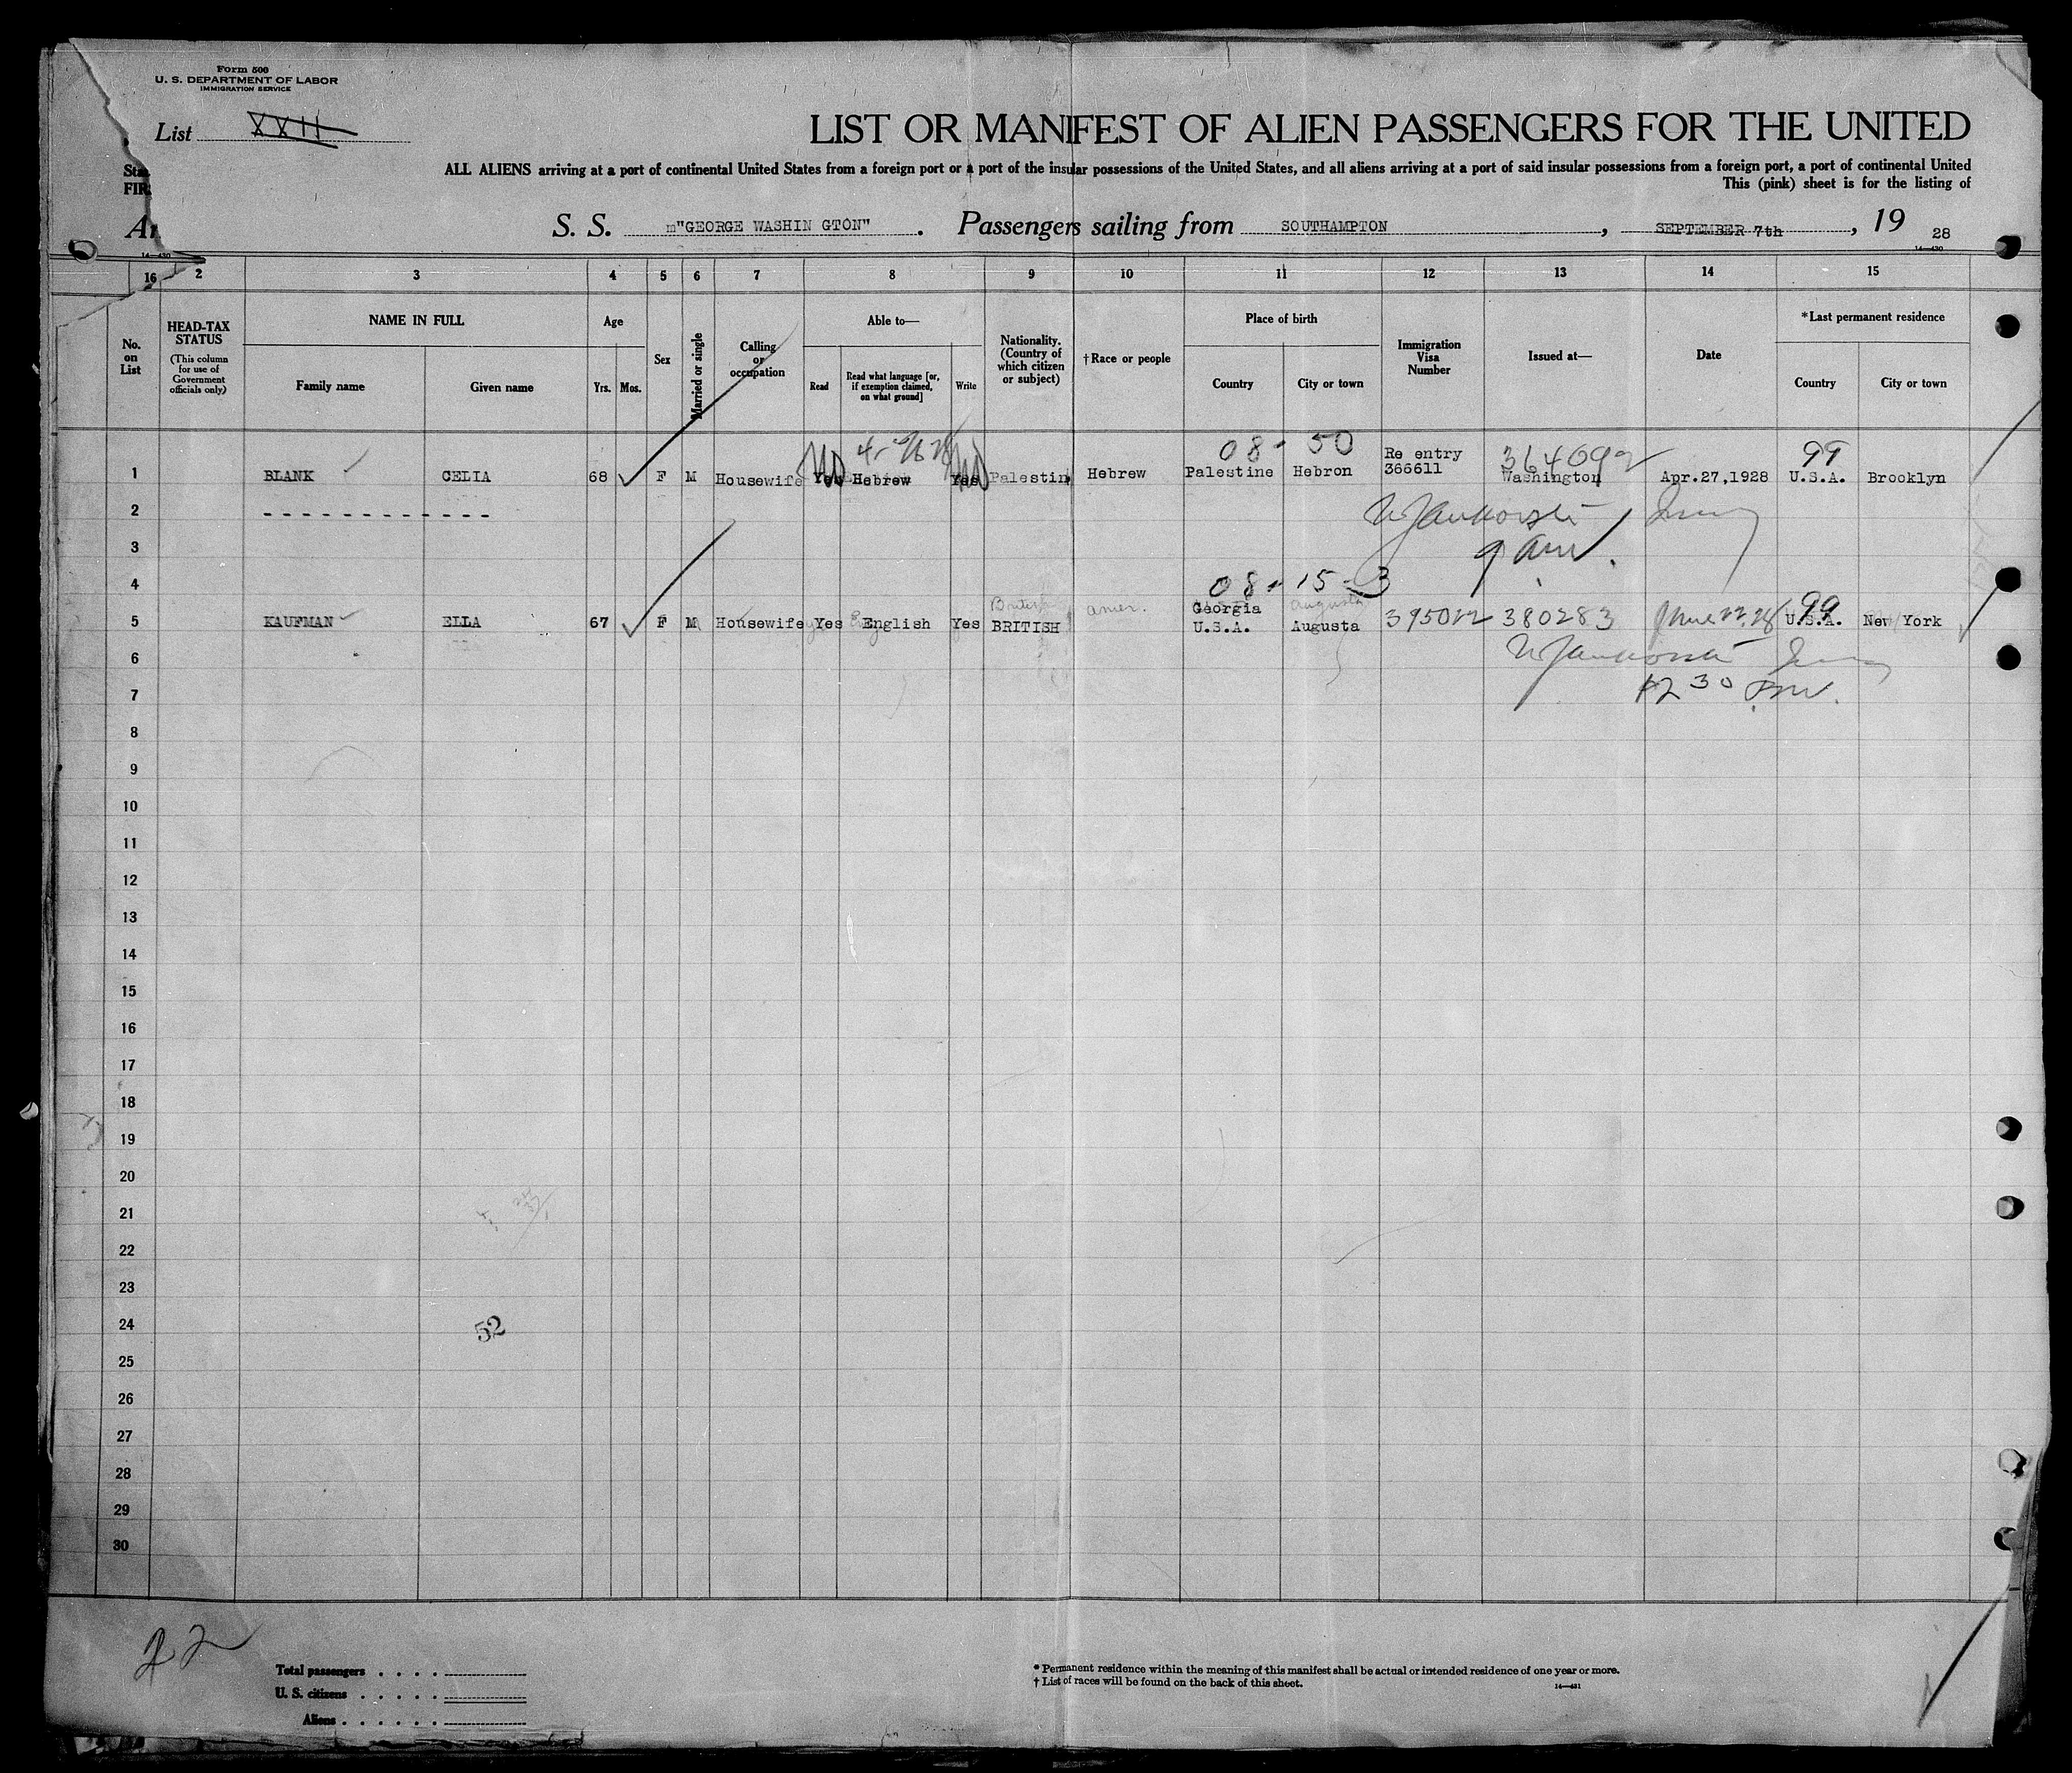 Form 500
U. S. DEPARTMENT OF LABOR
IMMIGRATION SERVICE
List XXII
LIST OR MANIFEST OF ALIEN PASSENGERS FOR THE UNITED
ALL ALIENS arriving at a port of continental United States from a foreign port or a port of the insular possessions of the United States, and all aliens arriving at a port of said insular possessions from a foreign port, a port of continental United
This (pink) sheet is for the listing of
Sta
FIR
S. S. m"GEORGE WASHIN GTON". Passengers sailing from SOUTHAMPTON, SEPTEMBER 7th, 19 28
14—430 14—430
16 2 3 4 5 6 7 8 9 10 11 12 13 14 15
No. on List
HEAD-TAX STATUS
(This column for use of Government officials only)
NAME IN FULL
Family name Given name
Age
Yrs. Mos.
Sex
Married or single
Calling or occupation
Able to—
Read Read what language [or, if exemption claimed, on what ground] Write
Nationality. (Country of which citizen or subject)
†Race or people
Place of birth
Country City or town
Immigration Visa Number
Issued at—
Date
*Last permanent residence
Country City or town
08 - 50 99
1 BLANK CELIA 68 F M Housewife No Yes Hebrew Yes No Palestin Hebrew Palestine Hebron Re entry 366611 364092 Washington Apr.27,1928 U.S.A. Brooklyn
2 - - - - - - - - - - - -
3 9 AM.
4 08 - 15 - 3
5 KAUFMAN ELLA 67 F M Housewife Yes English Yes British BRITISH amer. Georgia U.S.A. Augusta Augusta 395022 380283 June 22, 28 99 U.S.A. New York
6
7 12 30 PM.
8
9
10
11
12
13
14
15
16
17
18
19
20
21
22
23
24 52
25
26
27
28
29
30
22
Total passengers . . . .
U. S. citizens . . . . .
Aliens . . . . . .
* Permanent residence within the meaning of this manifest shall be actual or intended residence of one year or more.
† List of races will be found on the back of this sheet.
14—431